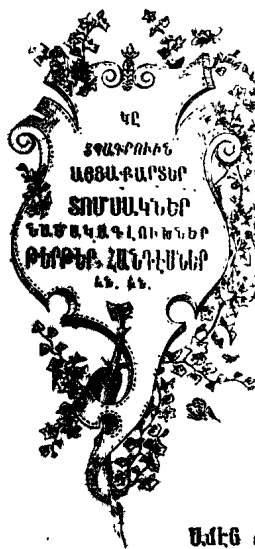 ԿԸ
ՏՊԱԳՐՈՒԻՆ
ԱՅՑԱՔԱՐՏԵՐ
ՏՈՄՍԱԿՆԵՐ
ՆԱՄԱԿԱԳԼՈՒԽՆԵՐ
ԹԵՐԹԵՐ ՀԱՆԴԷՍՆԵՐ
ԵՆ. ԵՆ.
ԱՄԷՆ